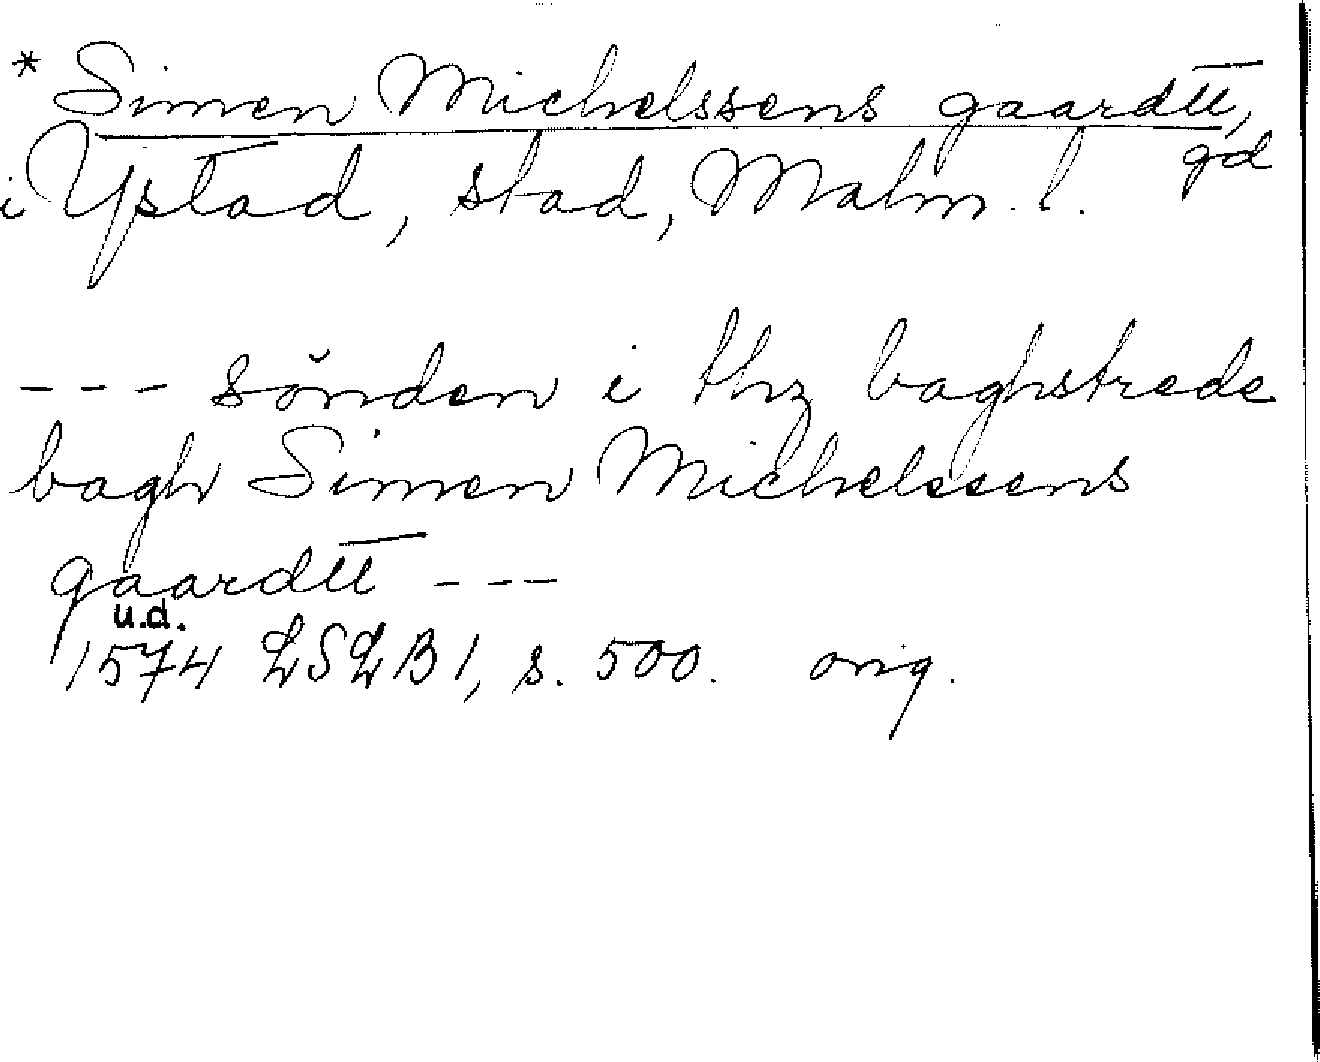 * Simen Michelssens gaardtt,
gd
i Ystad, stad, Malm. l.
--- sönden i thz baghstrede
bagh Simen Michelssens
gaardtt ---
u.d.
1574 LSLB 1, s. 500. orig.